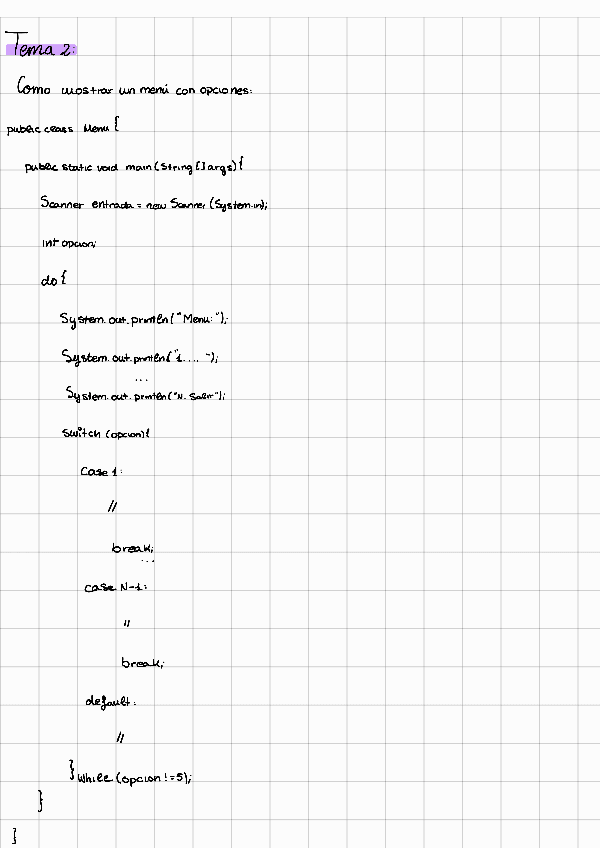 Tema 2:
Como mostrar un menú con opciones:
public class Menu {
public static void main (String [] args) {
Scanner entrada = new Scanner (System.in);
int opcion;
do {
System.out.println ("Menu: ");
System.out.println ("1. ... ");
...
System.out.println ("N. Salir");
switch (opcion) {
case 1:
//
break;
...
case N-1:
//
break;
default:
//
} while (opcion != 5);
}
}